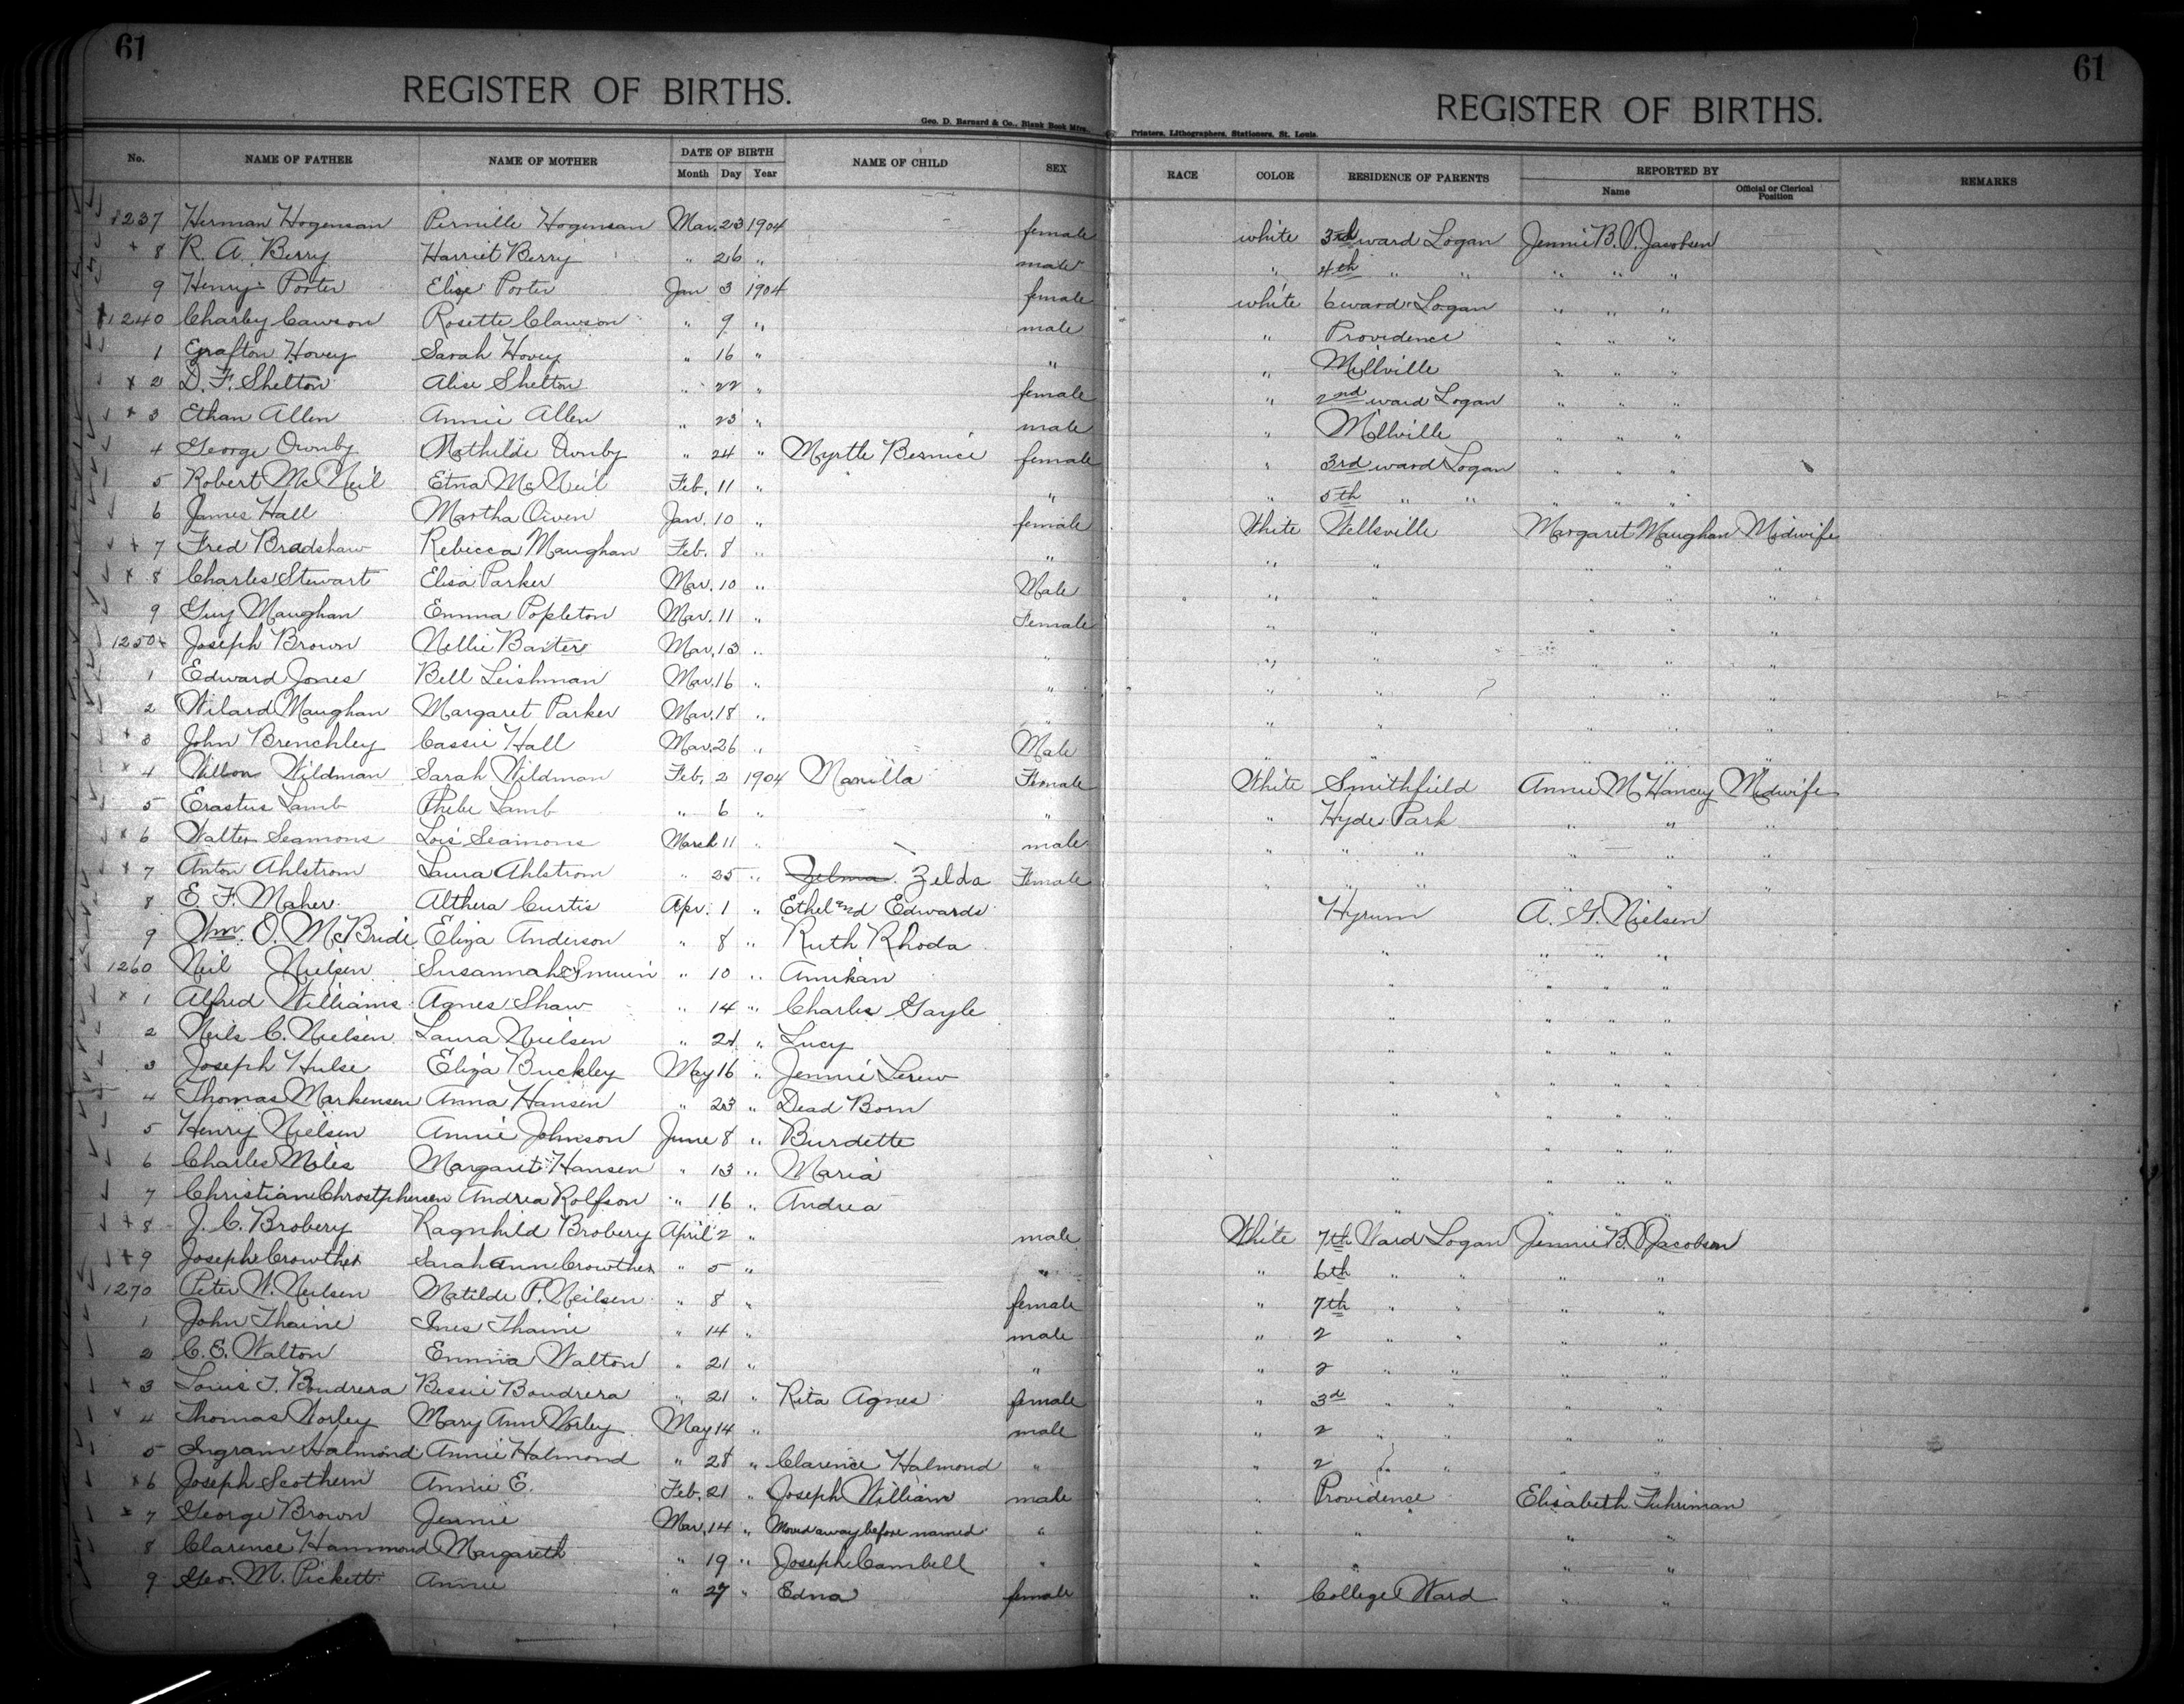 61 61
REGISTER OF BIRTHS. REGISTER OF BIRTHS.
Geo. D. Barnard & Co., Blank Book Mfrs., Printers, Lithographers, Stationers, St. Louis.
No. NAME OF FATHER NAME OF MOTHER DATE OF BIRTH NAME OF CHILD SEX RACE COLOR RESIDENCE OF PARENTS REPORTED BY REMARKS
Month Day Year Name Official or Clerical Position
1237 Herman Hogensan Pernille Hogensan Mar. 23 1904 female white 3rd ward Logan Jennie B. V. Jacobsen
+ 8 R. A. Berry Harriet Berry " 26 " male " 4th " " " " "
9 Henry Porter Elise Porter Jan 3 1904 female white 6 ward Logan " " "
1240 Charley Cawson Rosette Clawson " 9 " male " Providence " " "
1 Grafton Hovey Sarah Hovey " 16 " " " Millville " " "
x 2 D. F. Shelton Alise Shelton " 22 " female " 2nd ward Logan " " "
+ 3 Ethan Allen Annie Allen " 23 " male " Millville " " "
4 George Ownby Mathilde Ownby " 24 " Myrtle Bernice female " 3rd ward Logan " " "
5 Robert McNeil Etna McNeil Feb. 11 " " " 5th " " " " "
6 James Hall Martha Owen Jan. 10 " female White Wellsville Margaret Maughan Midwife
+ 7 Fred Bradshaw Rebecca Maughan Feb. 8 " " " " " " "
x 8 Charles Stewart Elisa Parker Mar. 10 " Male " " " " "
9 Guy Maughan Emma Popleton Mar. 11 " Female " " " " "
1250 x Joseph Brown Nellie Baxter Mar. 13 " " " " " " "
1 Edward Jones Bell Leishman Mar. 16 " " " " " " "
2 Wilard Maughan Margaret Parker Mar. 18 " " " " " " "
+ 3 John Brenchley Cassie Hall Mar. 26 " Male " " " " "
x 4 Wildman Sarah Wildman Feb. 2 1904 Manilla Female White Smithfield Annie M Hancey Midwife
5 Erastus Lamb Phebe Lamb " 6 " " " Hyde Park " " "
x 6 Walter Seamons Lois Seamons March 11 " male " " " " " "
x 7 Anton Ahlstrom Laura Ahlstrom " 25 " Zelma. Zelda Female " " " " " "
8 E. F. Maher Althera Curtis Apr. 1 " Ethel and Edwards Hyrum A. G. Nielsen
9 Wm. O. McBride Eliza Anderson " 8 " Ruth Rhoda " " " "
1260 Neil Nielsen Susannah " 10 " Amikan " " " "
x 1 Alfred Williams Agnes Shaw " 14 " Charles Gayle " " " "
2 Neils C. Nielsen Laura Nielsen " 21 " Lucy " " " "
3 Joseph Hulse Eliza Buckley May 16 " Jennie " " " "
4 Thomas Markensen Anna Hansen " 23 " Dead Born " " " "
5 Henry Nielsen Annie Johnson June 8 " Burdette " " " "
6 Charles Miles Margaret Hansen " 13 " Maria " " " "
7 Christian Chrostphensen Andrea Rolfson " 16 " Andrea " " " "
+ 8 J. C. Brobery Ragnhild Brobery April 2 " male White 7th Ward Logan Jennie B. V. Jacobsen
+ 9 Joseph Crowther Sarah Ann Crowther " 5 " " " 6th " " " "
1270 Peter W. Neilsen Matilde P. Neilsen " 8 " female " 7th " " " "
1 John Thaine Ines Thaine " 14 " male " 2 " " " "
2 C. E. Walton Emma Walton " 21 " " " 2 " " " "
+ 3 Louis T. Boudrera Bessie Boudrera " 21 " Rita Agnes female " 3d " " " "
x 4 Thomas Worley Mary Ann Worley May 14 " male " 2 " " " "
5 Ingram Halmond Annie Halmond " 28 " Clarence Halmond " " 2 " " " "
x 6 Joseph Scothern Annie E. Feb. 21 " Joseph William male " Providence Elisabeth Fuhriman
x 7 George Brown Jennie Mar. 14 " Moved away before named " " " " "
8 Clarence Hammond Margareth " 19 " Joseph Cambell " " " " "
9 Geo. M. Pickett Annie " 27 " Edna female " College Ward " "